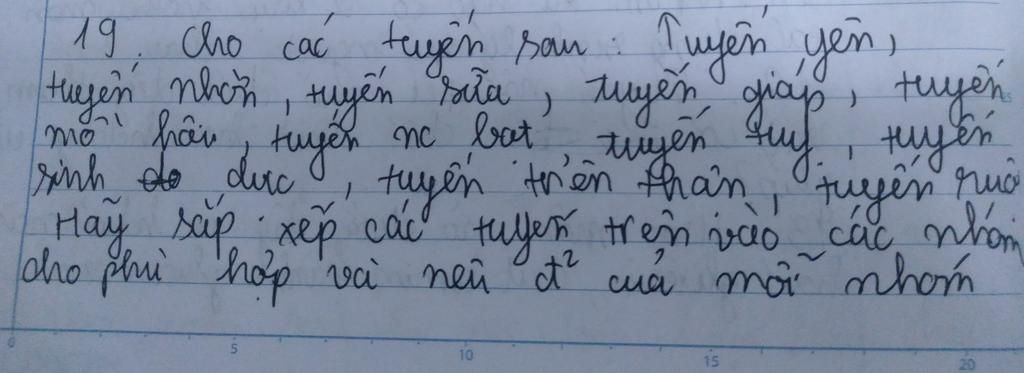 19. Cho các tuyến sau: Tuyến yên,
tuyến nhờn, tuyến sữa, tuyến giáp, tuyến
mồ hôi, tuyến nc bọt, tuyến tụy, tuyến
sinh dục, tuyến trên thận, tuyến ruộ
Hãy sắp xếp các tuyến trên vào các nhóm
cho phù hợp và nêu đ² của mỗi nhóm
0 5 10 15 20